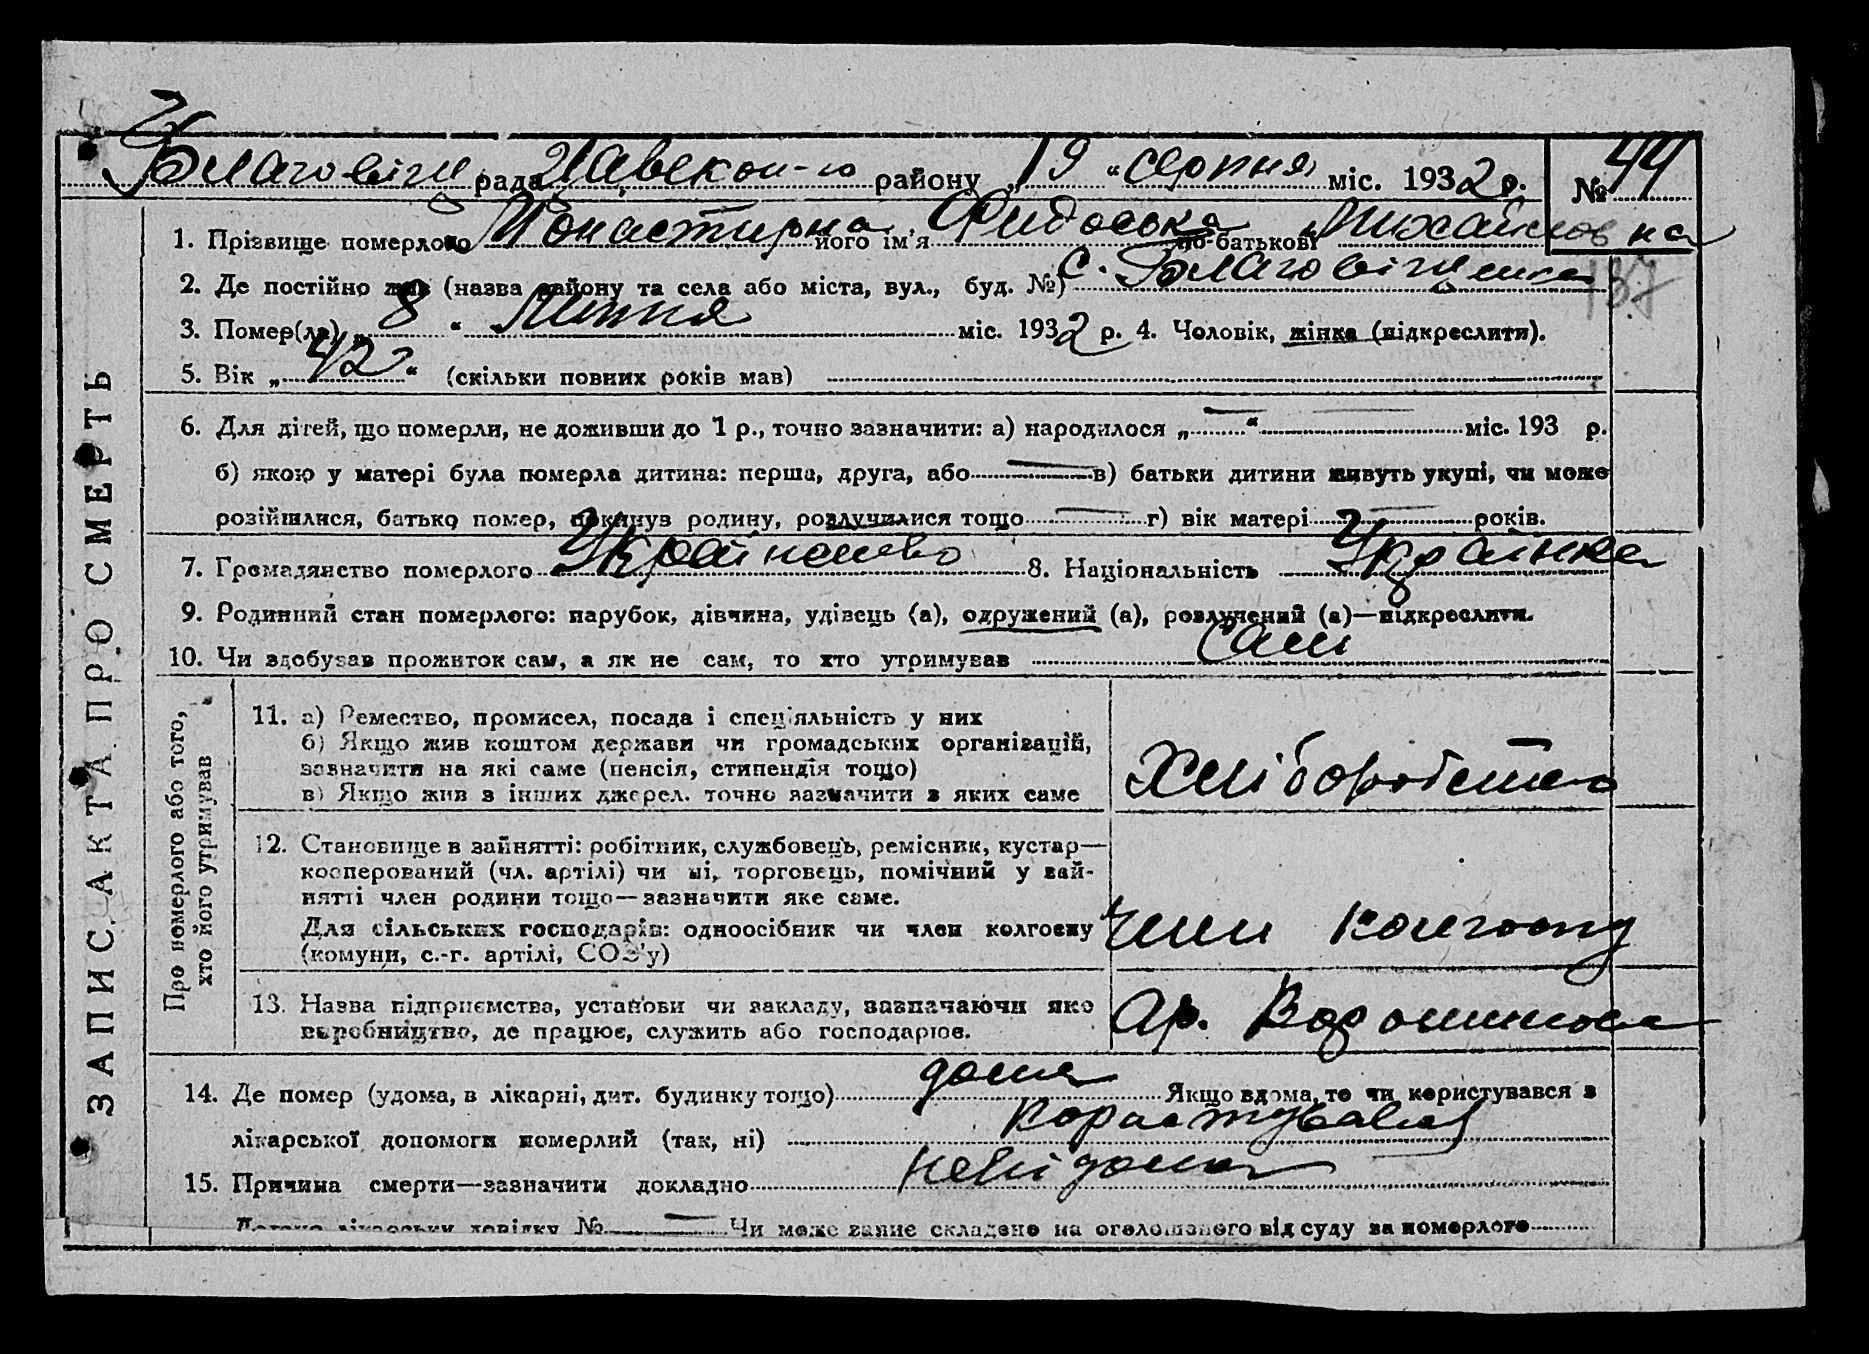 Благовіщ рада Павлков-го району „19“ серпня міс. 1932 р. № 44
1. Прізвище померлого Монастирна його ім'я Фидоська по-батькові Михайловна
2. Де постійно жив (назва району та села або міста, вул., буд. №) с. Благовіщенка
137
3. Помер(ла) „8“ Липня міс. 1932 р. 4. Чоловік, жінка (підкреслити).
5. Вік „42“ (скільки повних років мав)
6. Для дітей, що померли, не доживши до 1 р., точно зазначити: а) народилося „—“ — міс. 193 р.
б) якою у матері була померла дитина: перша, друга, або — в) батьки дитини живуть укупі, чи може
розійшлися, батько помер, покинув родину, розлучилися тощо — г) вік матері — років.
7. Громадянство померлого Українсько 8. Національність Українка
9. Родинний стан померлого: парубок, дівчина, удівець (а), одружений (а), розлучений (а)—підкреслити.
10. Чи здобував прожиток сам, а як не сам, то хто утримував сам
ЗАПИС АКТА ПРО СМЕРТЬ
Про померлого або того,
хто його утримував
11. а) Ремество, промисел, посада і спеціяльність у них
б) Якщо жив коштом держави чи громадських організацій,
зазначити на які саме (пенсія, стипендія тощо)
в) Якщо жив з інших джерел. точно зазначити з яких саме
Хліборобство
12. Становище в зайнятті: робітник, службовець, ремісник, кустар—
кооперований (чл. артілі) чи ні, торговець, помічний у зай-
нятті член родини тощо—зазначити яке саме.
Для сільських господарів: одноосібник чи член колгоспу
(комуни, с.-г. артілі, СОЗ'у)
член колгоспу
13. Назва підприємства, установи чи закладу, зазначаючи яке
виробництво, де працює, служить або господарює.
Ар. Ворошилова
14. Де помер (удома, в лікарні, дит. будинку тощо) дома Якщо вдома, то чи користувався з
лікарської допомоги померлий (так, ні) користувалась
15. Причина смерти—зазначити докладно невідома
лікарську довідку № — Чи може запис складено на оголошеного від суду за померлого